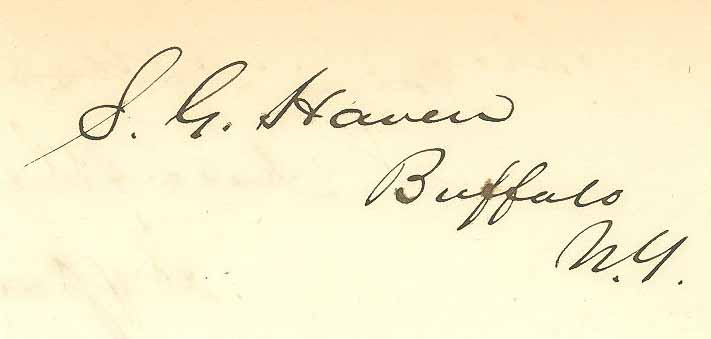 S. G. Haven
Buffalo
N.Y.